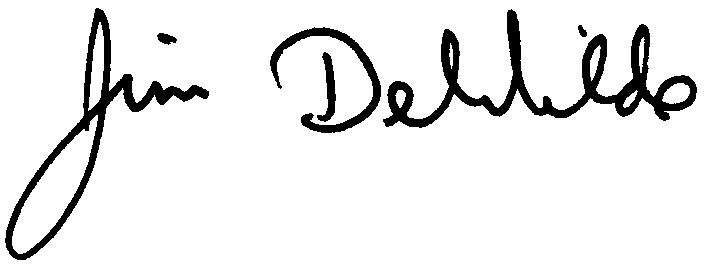 Jim DeWilde